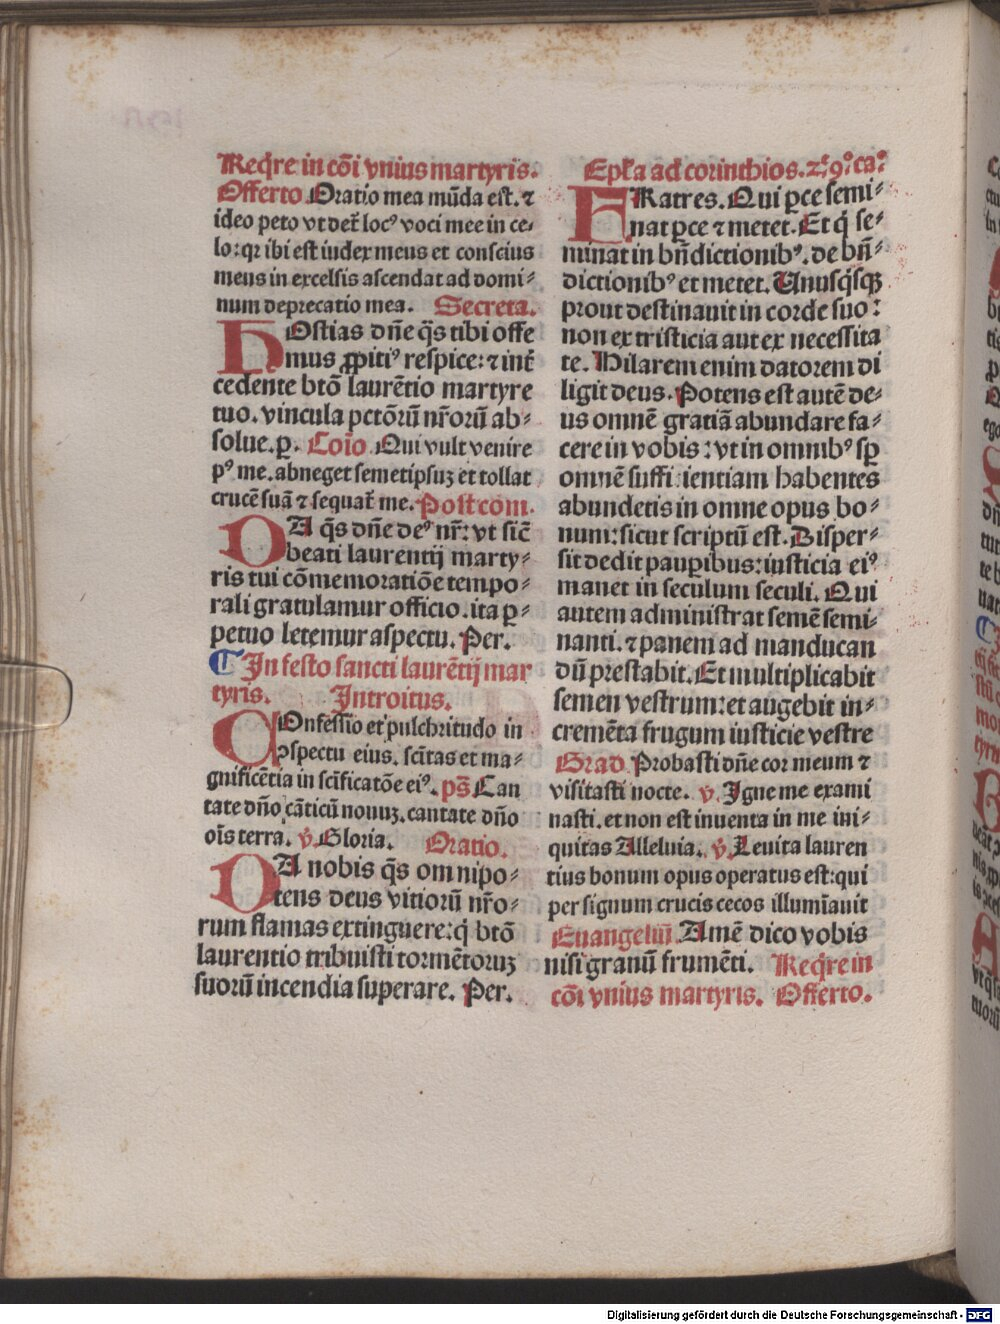 Reqͥre in cōi vnius martyris.
Offerto. Oratio mea mūda est. ⁊
ideo peto vt det̄ locꝰ voci mee in ce⸗
lo: qꝛ ibi est iudex meus et conscius
meus in excelsis ascendat ad domi⸗
num deprecatio mea. Secreta.
HOstias dn̄e q̄s tibi offe
mus ꝓpitiꝰ respice: ⁊ int̄
cedente btō laurētio martyre
tuo. vincula pctōrū nr̄orū ab⸗
solue. ꝑ. Coīo. Qui vult venire
pꝰ me. abneget semetipsuꝫ et tollat
crucē suā ⁊ sequat̄ me. Postcom.
DA q̄s dn̄e deꝰ nr̄: vt sic̄
beati laurentij marty⸗
ris tui cōmemoratiōe tempo⸗
rali gratulamur officio. ita ꝑ⸗
petuo letemur aspectu. Per.
¶ In festo sancti laurētij mar
tyris. Introitus.
COnfessio et pulchritudo in
ꝯspectu eius. sc̄itas et ma⸗
gnificētia in sc̄ificatōe eiꝰ. ps̄ Can
tate dn̄o cāticū nouuꝫ. cantate dn̄o
oīs terra. v̄. Gloria. Oratio.
DA nobis q̄s omnipo⸗
tens deus vitiorū nr̄o⸗
rum flamas extinguere: q̄ btō
laurentio tribuisti tormētoruꝫ
suorū incendia superare. Per.
Epl̄a ad corinthios. 2ͤ. 9ͦ. caͦ.
FRatres. Qui ꝑce semi⸗
nat ꝑce ⁊ metet. Et qͥ se⸗
minat in bn̄dictionibꝰ. de bn̄⸗
dictionibꝰ et metet. Unusqͥsqꝫ
prout destinauit in corde suo:
non ex tristicia aut ex necessita
te. Hilarem enim datorem di
ligit deus. Potens est autē de⸗
us omnē gratiā abundare fa⸗
cere in vobis: vt in omnibꝰ sꝑ
omnē suffi ientiam habentes
abundetis in omne opus bo⸗
num: sicut scriptū est. Disper⸗
sit dedit pauꝑibus: iusticia eiꝰ
manet in seculum seculi. Qui
autem administrat semē semi⸗
nanti. ⁊ panem ad manducan
dū prestabit. Et multiplicabit
semen vestrum: et augebit in⸗
cremēta frugum iusticie vestre
Grad. Probasti dn̄e cor meum ⁊
visitasti nocte. v. Igne me exami
nasti. et non est inuenta in me ini⸗
quitas Alleluia. v̄. Leuita lauren
tius bonum opus operatus est: qui
per signum crucis cecos illumīauit
Euangeliū. Amē dico vobis
nisi granū frumēti. Reqͥre in
cōi vnius martyris. Offerto.
Digitalisierung gefördert durch die Deutsche Forschungsgemeinschaft - DFG